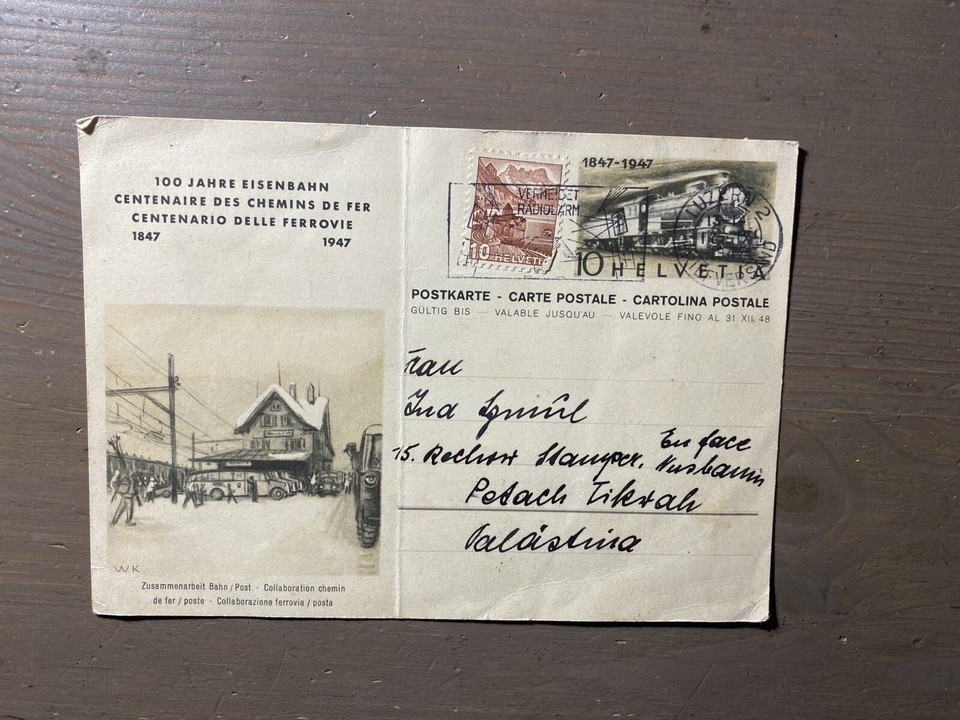 100 JAHRE EISENBAHN
CENTENAIRE DES CHEMINS DE FER
CENTENARIO DELLE FERROVIE
1847 1947
1847-1947
VERMEIDET
RADIOLÄRM
LUZERN 2
10 HELVETIA
10 HELVETIA
POSTKARTE - CARTE POSTALE - CARTOLINA POSTALE
GÜLTIG BIS — VALABLE JUSQU'AU — VALEVOLE FINO AL 31 XII 48
Frau
Ina Szmul
15. Rechow Stamper. En face
Nusbaum
Petach Tikwah
Palästina
WK
Zusammenarbeit Bahn / Post · Collaboration chemin
de fer / poste · Collaborazione ferrovia / posta